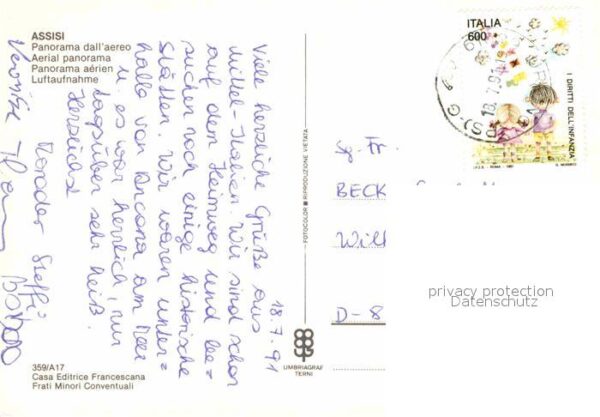 ASSISI
Panorama dall'aereo
Aerial panorama
Panorama aérien
Luftaufnahme
18.7.91
Viele herzliche Grüße aus
Mittel-Italien. Wir sind schon
auf dem Heimweg und be=
suchen noch einige historische
Stätten. Wir waren unter=
halb von Ancona am Meer
u. es war herrlich, nur
tagsüber sehr heiß.
Herzlichst
Steffi
359/A17
Casa Editrice Francescana
Frati Minori Conventuali
FOTOCOLOR ■ RIPRODUZIONE VIETATA
UMBRIAGRAF
TERNI
ITALIA
600
I DIRITTI DELL'INFANZIA
BECK
Will
D-8
privacy protection
Datenschutz